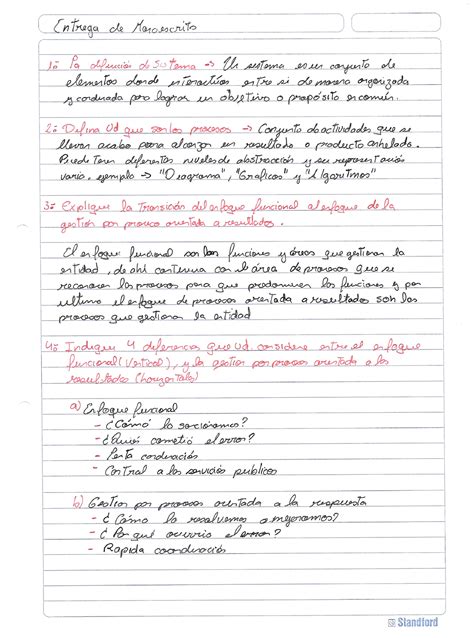 Entrega de Manuscrito
1º La difinición de Sistema -> Un sistema es un conjunto de
elementos donde interactúan entre si de manera organizada
y cordinada para lograr un objetivo o propósito en común.
2º Defina Ud que son los procesos -> Conjunto de actividades que se
llevan acabo para alcanzar un resultado o producto anhelado.
Puede tener diferentes niveles de abstracción y su representación
varia, ejemplo -> "Diagrama", "Graficos" y "Algoritmos"
3º Explique la transición del enfoque funcional al enfoque de la
gestión por proceso orientada a resultados.
El enfoque funcional son las funciones y áreas que gestionan la
entidad, de ahí continua con el área de procesos que se
reconocen los procesos para que predominen las funciones y por
ultimo el enfoque de procesos orientada a resultados son los
procesos que gestionan la entidad
4º Indique 4 diferencias que Ud. considere entre el enfoque
funcional (Vertical), y la gestión por procesos orientada a los
resultados (horizontales)
a) Enfoque funcional
- ¿Cómo lo sancionamos?
- ¿Quién cometió el error?
- Lenta cordinación
- Control a los servicios publicos
b) Gestión por procesos orientada a la respuesta
- ¿Cómo lo resolvemos o mejoramos?
- ¿Por qué ocurrio el error?
- Rapida coordinación
Standford